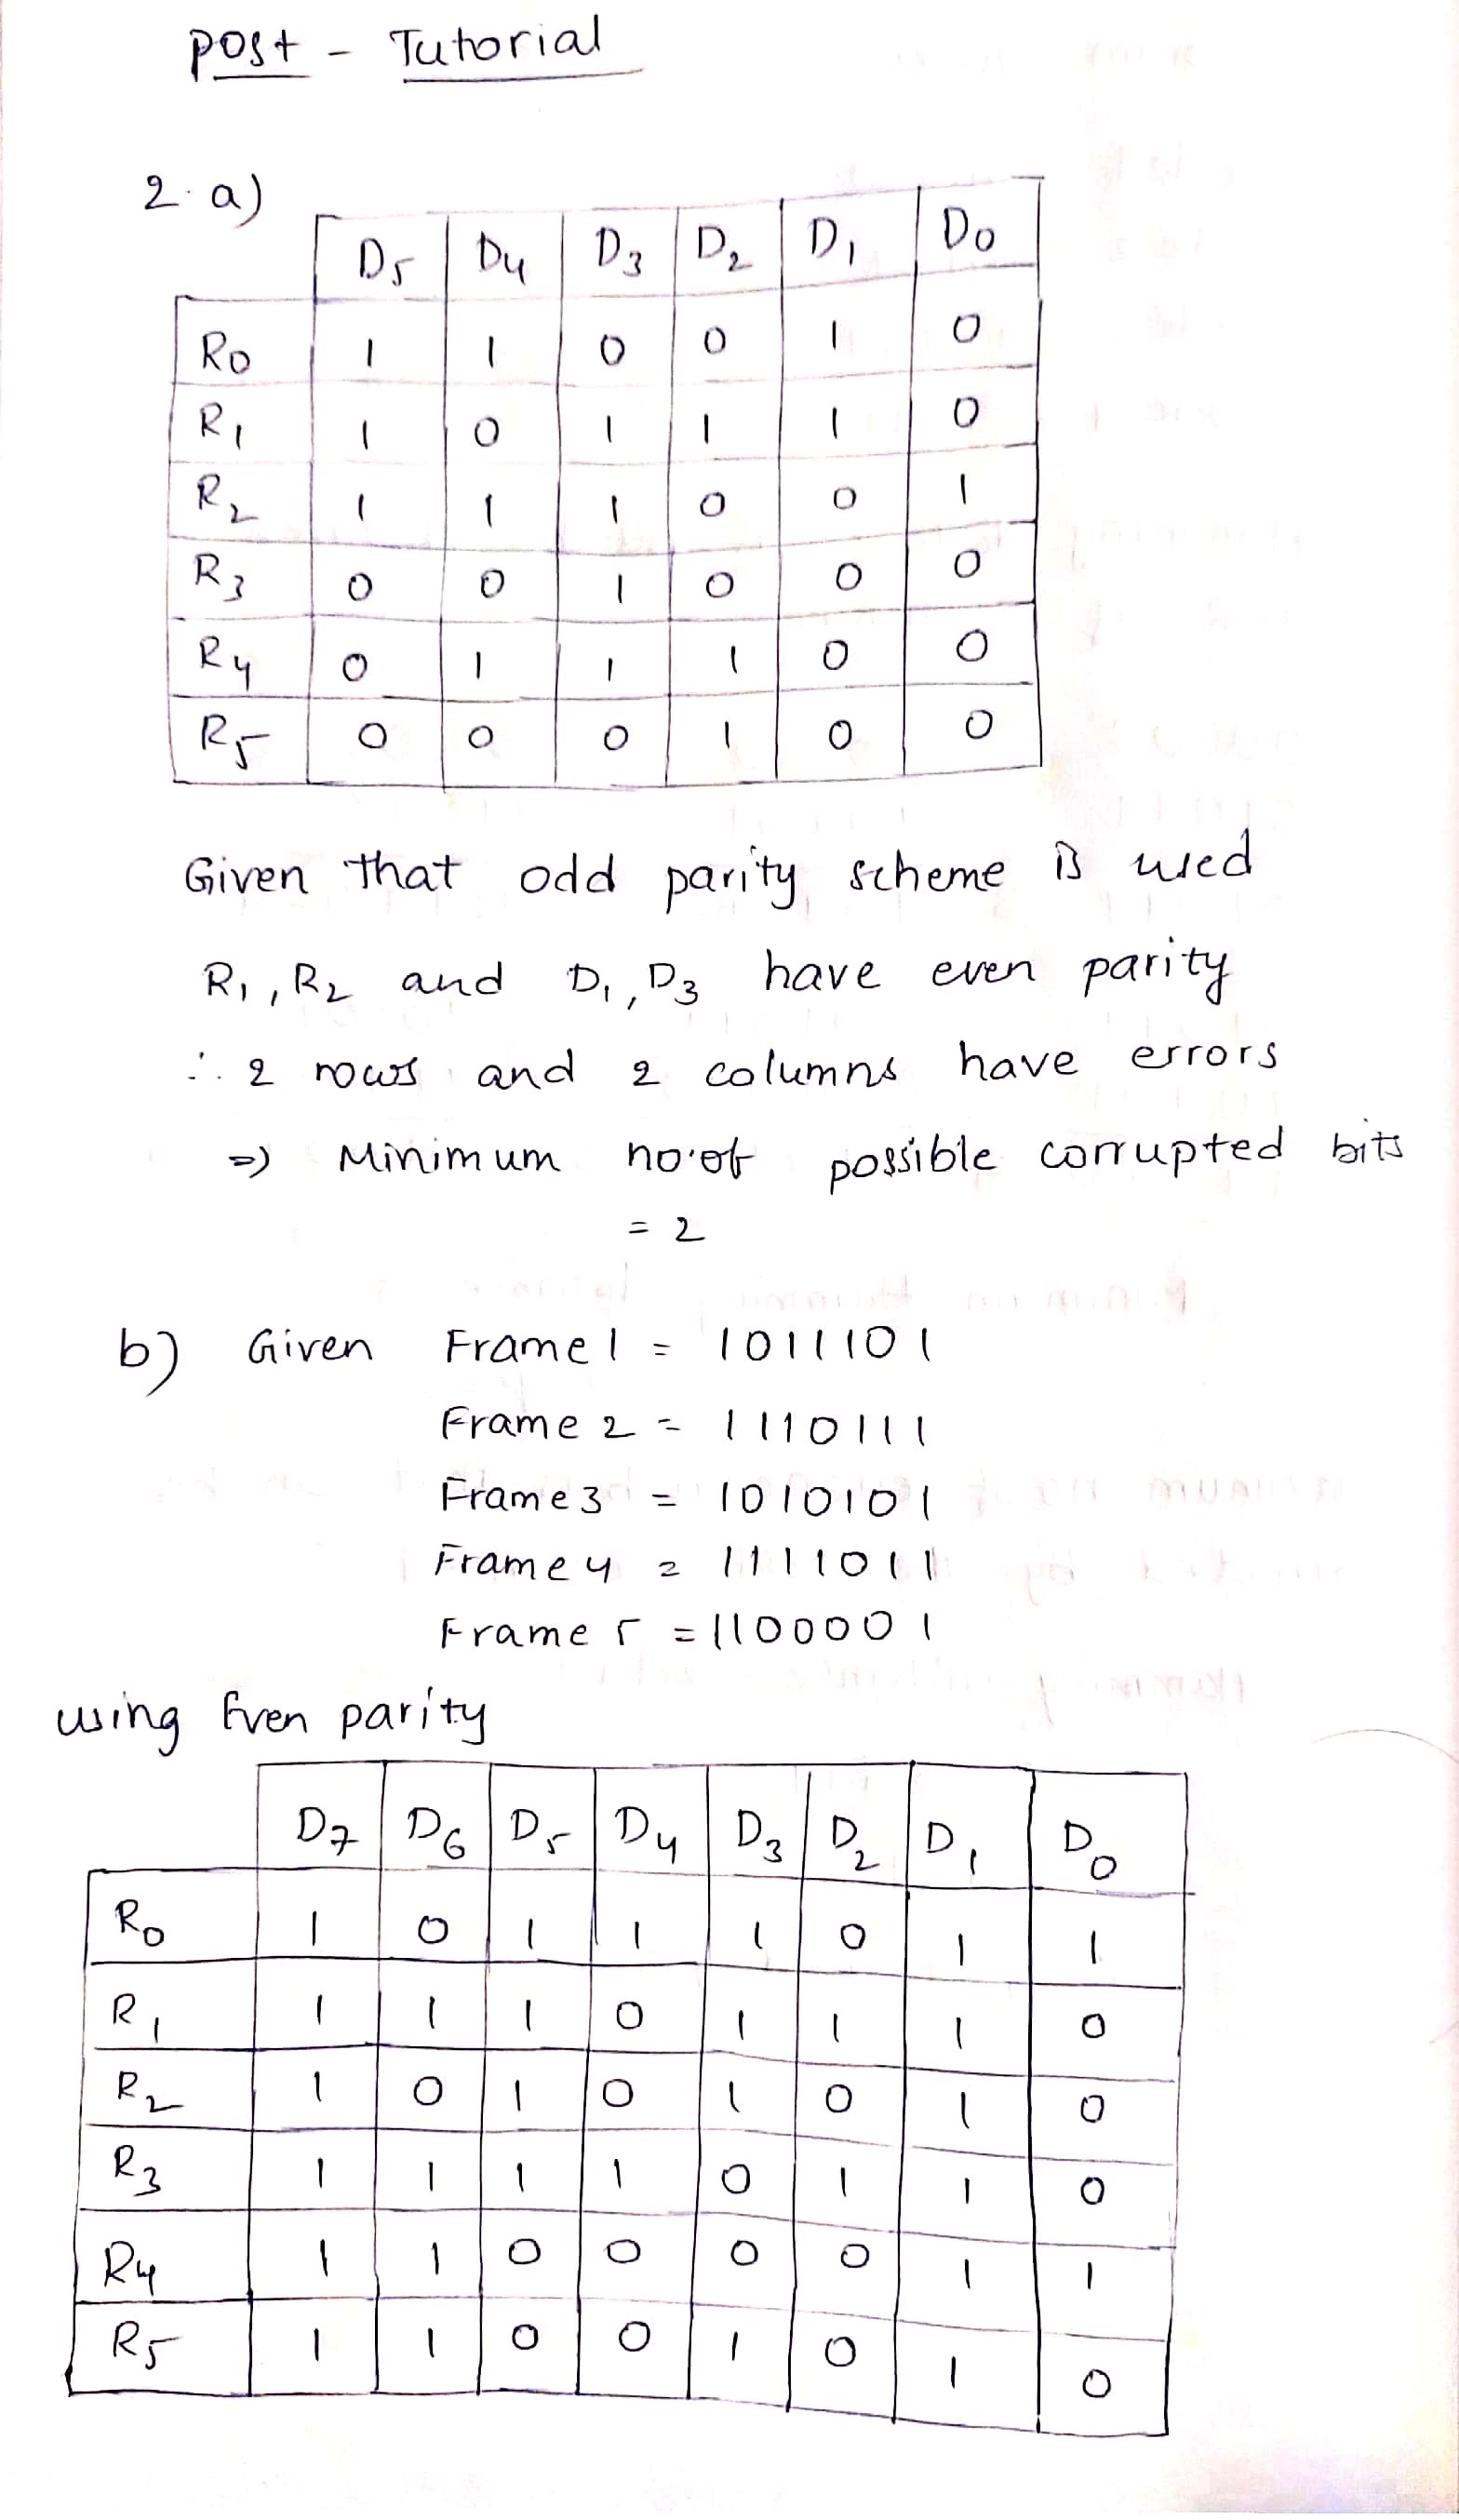 Post - Tutorial
2. a)
D5 D4 D3 D2 D1 D0
R0 1 1 0 0 1 0
R1 1 0 1 1 1 0
R2 1 1 1 0 0 1
R3 0 0 1 0 0 0
R4 0 1 1 1 0 0
R5 0 0 0 1 0 0
Given that odd parity scheme is used
R1, R2 and D1, D3 have even parity
∴ 2 rows and 2 columns have errors
⇒ Minimum no. of possible corrupted bits
= 2
b) Given Frame 1 = 1011101
Frame 2 = 1110111
Frame 3 = 1010101
Frame 4 = 1111011
Frame 5 = 1100001
using Even parity
D7 D6 D5 D4 D3 D2 D1 D0
R0 1 0 1 1 1 0 1 1
R1 1 1 1 0 1 1 1 0
R2 1 0 1 0 1 0 1 0
R3 1 1 1 1 0 1 1 0
R4 1 1 0 0 0 0 1 1
R5 1 1 0 0 1 0 1 0